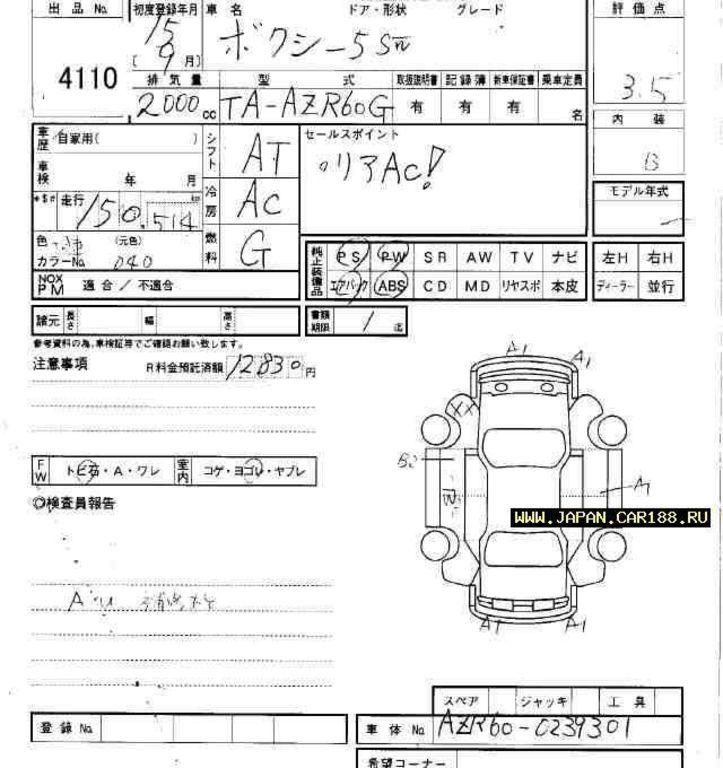 出品No. 初度登録年月 車名 ドア・形状 グレード 評価点
15 ボクシー5Sw
4110 ( 9月)
排気量 型式 取扱説明書 記録簿 新車保証書 乗車定員 3.5
2000cc TA-AZR60G 有 有 有 名
内装
車歴 自家用( ) シフト AT セールスポイント B
車検 年 月 リアAC!
モデル年式
走行 150,514 km 冷房 AC
色 (元色) 燃料 G 純正装備品 PS PW SR AW TV ナビ 左H 右H
カラーNo. 040
NOX PM 適合/不適合 エアバック ABS CD MD リヤスポ 本皮 ディーラー 並行
諸元 長さ 幅 高さ 書類期限 1 迄
参考資料の為、車検証等でご確認お願い致します。
注意事項 R料金預託済額 12830円
A1 A1
XX
B2
FW トビ石・A・ワレ 室内 コゲ・ヨゴレ・ヤブレ
W A
◎検査員報告
WWW.JAPAN.CAR188.RU
A1 A1
スペア ジャッキ 工具
登録No. 車体No. AZR60-0239301
希望コーナー